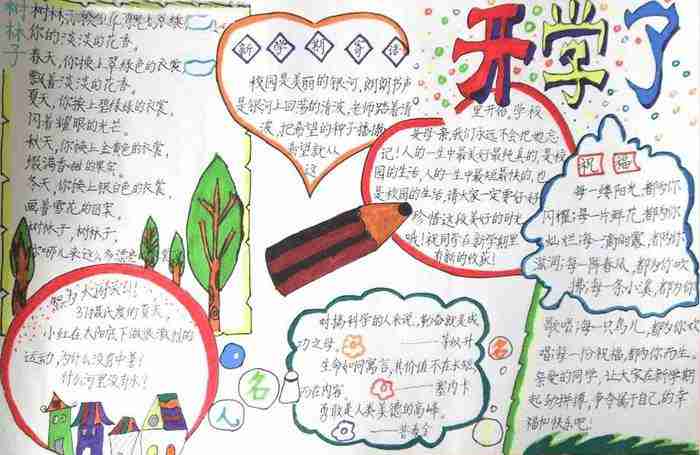 开学了
树林子
你的淡淡的花香。
春天,你换上翠绿色的衣裳,
飘着淡淡的花香。
夏天,你换上碧绿绿的衣裳,
闪着耀眼的光芒。
秋天,你换上金黄色的衣裳,
缀满香甜的果实。
冬天,你换上银白色的衣裳,
画着雪花的图案。
树林子,树林子,
新学期寄语
校园是美丽的银河,朗朗书声
是银河上回荡的清波,老师踏着清
波,把希望的种子播撒
希望就从
这
里开始,学校
是母亲,我们永远不会把她忘
记!人的一生中最美好最纯真的,是校
园的生活,人的一生中最短最快的,也
是校园的生活,请大家一定要好好
珍惜这段美好的时光
哦!祝同学在新学期里
有新的收获!
祝福
每一缕阳光,都为你
闪耀;每一片鲜花,都为你
灿烂;每一滴雨露,都为你
滋润;每一阵春风,都为你吹
拂;每一条小溪,都为你
歌唱;每一只鸟儿,都为你
唱;每一份祝福,都为你而生。
亲爱的同学,让大家在新学期
起劲拼搏,争夺属于自己的幸
福和快乐吧!
37摄氏度的夏天,
小红在太阳底下做很激烈的
运动,为什么没有中暑?
什么河里没有水?
名
人
名
对搞科学的人来说,勤奋就是成
功之母。
——茅以升
生命如同寓言,其价值不在长短,
而在内容。
——塞内卡
勇敢是人类美德的高峰。
——普希金